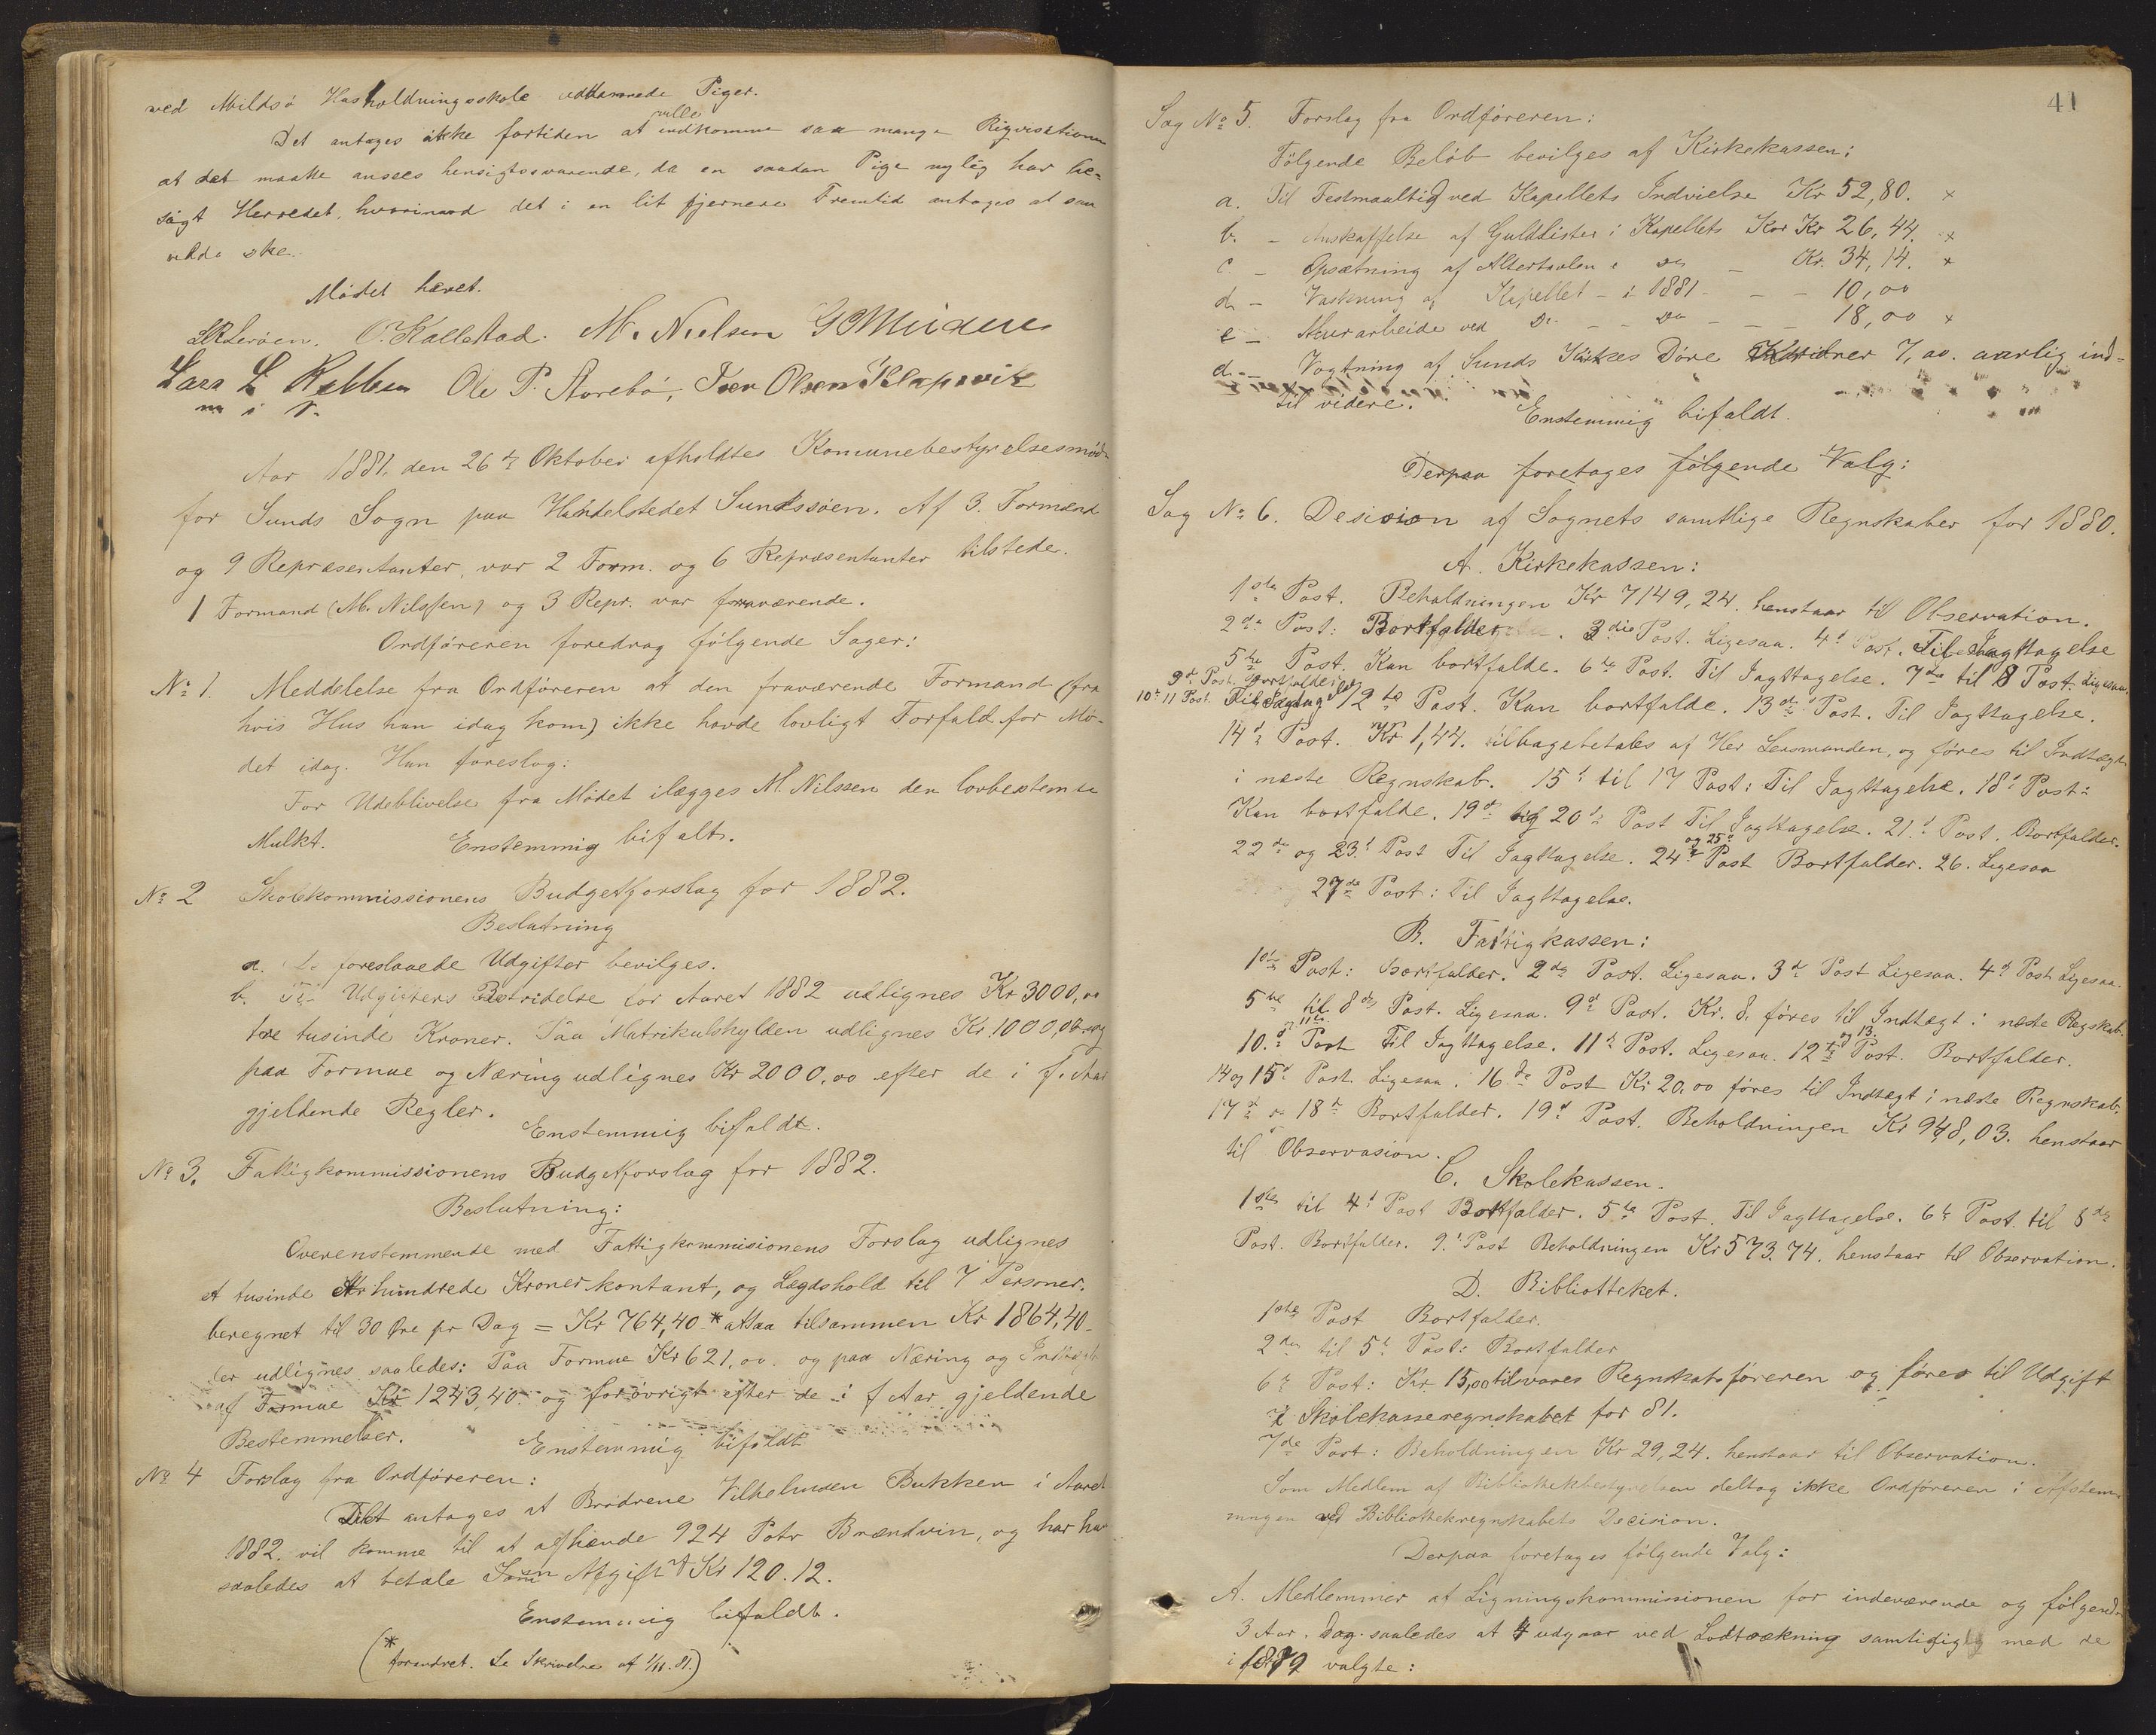 ved Mildsø Husholdningsskole uddannede Piger.
Det antages ikke fortiden at ville indkomme saa mange Riqvisitioner
at det maatte ansees hensigtssvarende, da en saadan Pige nylig har be-
søgt Herredet, hvorimod det i en lit fjernere Fremtid antages at saa
vilde ske.
Mødet hævet.
O. Kallestad. M. Nielsen
Lars L Ole P. Storebø, Iver Olsen Klepsvik
m i P.
Aar 1881, den 26de Oktober afholdtes Komunebestyrelsesmøde
for Sunds Sogn paa Handelstedet Sundssøen. Af 3. Formænd
og 9 Repræsentanter, var 2 Form. og 6 Repræsentanter tilstede.
1 Formand (M. Nilssen) og 3 Repr. var fraværende.
Ordføreren foredrag følgende Sager:
No 1. Meddelelse fra Ordføreren at den fraværende Formand (fra
hvis Hus han idag kom) ikke havde lovligt Forfald for Mø-
det idag. Han foreslog:
For Udeblivelse fra Mødet ilægges M. Nilssen den lovbestemte
Mulkt. Enstemmig bifalt.
No 2 Skolekommissionens Budgetforslag for 1882.
Beslutning
a. De foreslaaede Udgifter bevilges.
b. Til Udgifters Bestridelse for Aaret 1882 udlignes Kr 3000,00
tre tusinde Kroner. Paa Matrikulskylden udlignes Kr. 1000,00 og
paa Formue og Næring udlignes Kr 2000,00 efter de i f. Aar
gjeldende Regler.
Enstemmig bifaldt.
No 3. Fattigkommissionens Budgetforslag for 1882.
Beslutning:
Overenstemmende med Fattigkommisionens Forslag udlignes
et tusinde hundrede Kroner kontant, og Lægdshold til 7 Personer.
beregnet til 30 Øre pr Dag = Kr 764,40 * altsaa tilsammen Kr 1864,40
der udlignes saaledes: Paa Formue Kr 621,00. og paa Næring og Indtægt
af Formue Kr 1243,40. og forøvrigt efter de i f Aar gjeldende
Bestemmelser. Enstemmig bifaldt
No 4 Forslag fra Ordføreren:
Det antages at Brødrene Vilhelmsen Bukken i Aaret
1882. vil komme til at afhænde 924 Potr Brændvin, og har han
saaledes at betale Som Afgift Kr 120.12.
Enstemmig bifaldt.
(* forandret. Se Skrivelse af 1/11.81.)
41
Sag No 5. Forslag fra Ordføreren:
Følgende Beløb bevilges af Kirkekassen:
a. Til Festmaaltid ved Kapellets Indvielse Kr 52,80. x
b. - Anskaffelse af Guldlister i Kapellets Kor Kr 26,44. x
c. - Opsætning af Altertavlen i Do - Kr. 34,14. x
d - Vaskning af Kapellet - i 1881 - - - 10,00
e - Murarbeide ved Do - - Do - - - 18,00 x
d. - Vogtning af Sunds Kirkes Døre Kroner 7,00. aarlig ind-
til videre. Enstemmig bifaldt.
Derpaa foretages følgende Valg:
Sag No 6. Desision af Sognets samtlige Regnskaber for 1880.
A. Kirkekassen:
1ste Post. Beholdningen Kr 7149,24. henstaar til Observation.
2de Post: Bortfalder. 3die Post. Ligesaa. 4d Post. Til Iagttagelse
5te Post. Kan bortfalde. 6te Post. Til Iagttagelse. 7de til 8 Post. Ligesaa.
9d Post. Bortfalder
10d 11 Post. Til Iagttagelse 12te Post. Kan bortfalde. 13de Post. Til Iagttagelse.
14d Post. Kr 1,44. tilbagebetales af Her Lensmanden, og føres til Indtægt
i næste Regnskab. 15d til 17 Post: Til Iagttagelse. 18d Post:
Kan bortfalde. 19d og 20de Post Til Iagttagelse. 21d Post. Bortfalder.
22de og 23d Post Til Iagttagelse. 24d og 25d Post Bortfalder. 26. Ligesaa
27de Post: Til Iagttagelse.
B. Fattigkassen:
1ste Post: Bortfalder. 2de Post. Ligesaa. 3d Post Ligesaa. 4d Post Ligesaa.
5te til 8de Post. Ligesaa. 9d Post. Kr. 8, føres til Indtægt i næste Regskab.
10.d Post Til Iagttagelse. 11d Post. Ligesaa. 12te og 13. Post. Bortfalder.
14 og 15d Post. Ligesaa. 16de Post Kr 20,00 føres til Indtægt i næste Regnskab.
17d og 18d Bortfalder. 19d Post. Beholdningen Kr 948,03. henstaar
til Observasion.
C. Skolekassen.
1ste til 4d Post Bortfalder. 5te Post. Til Iagttagelse. 6te Post. til 8de
Post. Bortfalder. 9.d Post Beholdningen Kr 573.74. henstaar til Observation.
D. Bibliotteket.
1ste Post Bortfalder.
2de til 5d Post: Bortfalder
6te Post: Kr 15,00 tilvares Regnskabsføreren og føres til Udgift
i Skolekasseregnskabet for 81.
7de Post: Beholdningen Kr 29,24. henstaar til Observation.
Som Medlem af Bibliothekbestyrelsen deltog ikke Ordføreren i Afstem-
ningen ved Bibliothekregnskabets Decision.
Derpaa foretages følgende Valg:
A. Medlemmer af Ligningskommissionen for indeværende og følgende
3 Aar. Dog saaledes at 4 udgaar ved Lodtrækning samtidig med de
i 1879 valgte: